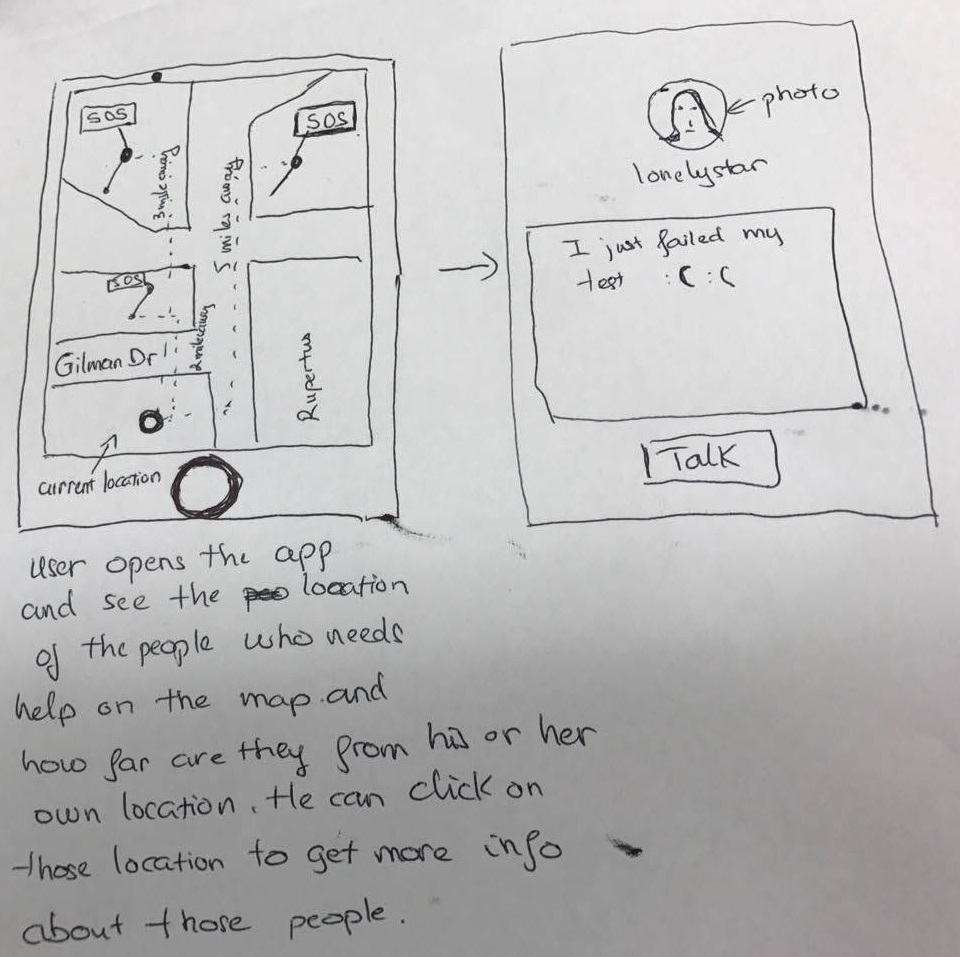 SOS
SOS
3 mile away
5 miles away
SOS
2 mile away
Gilman Dr
Rupertus
current location
photo
lonelystar
I just failed my
test :( :(
Talk
user opens the app
and see the location
of the people who needs
help on the map. and
how far are they from his or her
own location. He can click on
those location to get more info
about those people.